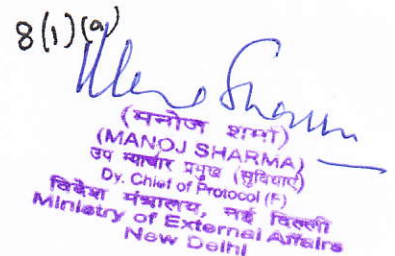 8(1)(a)
Manoj Sharma
(मनोज शर्मा)
(MANOJ SHARMA)
उप न्याचार प्रमुख (सुविधाएं)
Dy. Chief of Protocol (F)
विदेश मंत्रालय, नई दिल्ली
Ministry of External Affairs
New Delhi